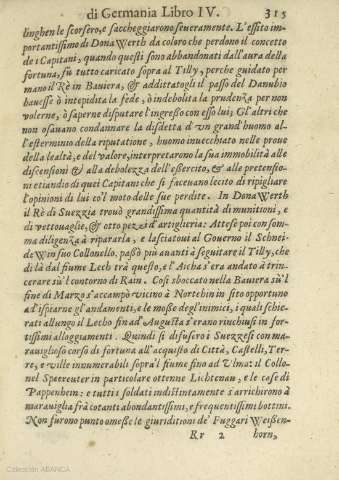 di Germania Libro IV. 315
linghen le scorsero, e saccheggiarono seueramente. L'essito im-
portantissimo di Dona Werth da coloro che perdono il concetto
de i Capitani, quando questi sono abbandonati dall'aura della
fortuna, fù tutto caricato sopra al Tilly, perche guidato per
mano il Rè in Bauiera, & addittatogli il passo del Danubio
hauesse ò intepidita la fede, ò indebolita la prudenza per non
volerne, ò saperne disputare l'ingresso con esso lui; Gl'altri che
non osauano condannare la disdetta d'vn grand'huomo al-
l'esterminio della riputatione, huomo inuecchiato nelle proue
della lealtà, e del valore, interpretarono la sua immobilità alle
discensioni & alla debolezza dell'essercito, & alle pretensio-
ni etiandio di quei Capitani che si faceuano lecito di ripigliare
l'opinioni di lui co'l moto delle sue perdite. In Dona Werth
il Rè di Suezzia trouò grandissima quantità di munitioni, e
di vettouaglie, & otto pezzi d'artiglieria: Attese poi con som-
ma diligenza à ripararla, e lasciatoui al Gouerno il Schnei-
deWin suo Collonello, passò più auanti à seguitare il Tilly, che
di là dal fiume Lech trà questo, e l'Aicha s'era andato à trin-
cerare sù'l contorno di Rain. Così sboccato nella Bauiera sù'l
fine di Marzo s'accampò vicino à Nortehin in sito opportuno
ad ispiarne gl'andamenti, e le mosse degl'inimici, i quali schie-
rati allungo il Lecho fin ad'Augusta s'erano rinchiusi in for-
tissimi alloggiamenti. Quindi si difusero i Suezzesi con ma-
rauiglioso corso di fortuna all'acquisto di Città, Castelli, Ter-
re, e ville innumerabili sopra'l fiume fino ad Vlma: il Collo-
nel Spereuter in particolare ottenne Lichtenau, e le case di
Pappenheim: e tutti i soldati indistintamente s'arrichirono à
marauiglia frà cotanti abondantissimi, e frequentissimi bottini.
Non furono punto omesse le giuriditioni de' Fuggari Weißen-
Rr 2 horn,
Colección ABANCA